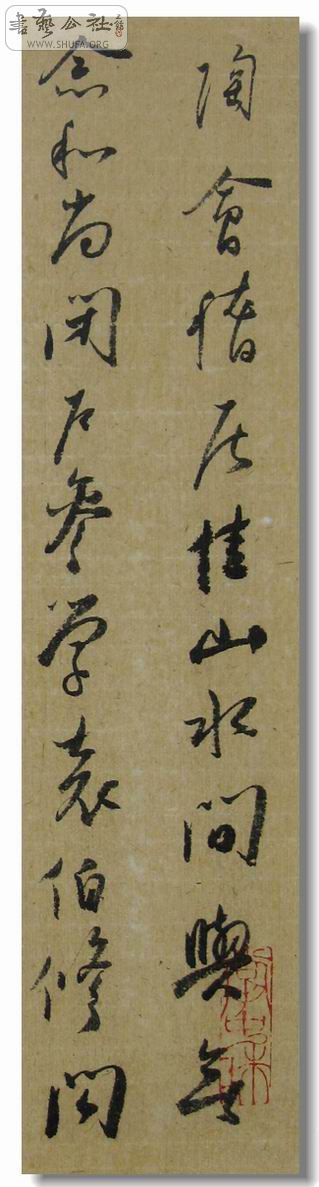 書藝公社
WWW.SHUFA.ORG
陶會稽居佳山水間與無
念和尚閉戶參學袁伯修聞